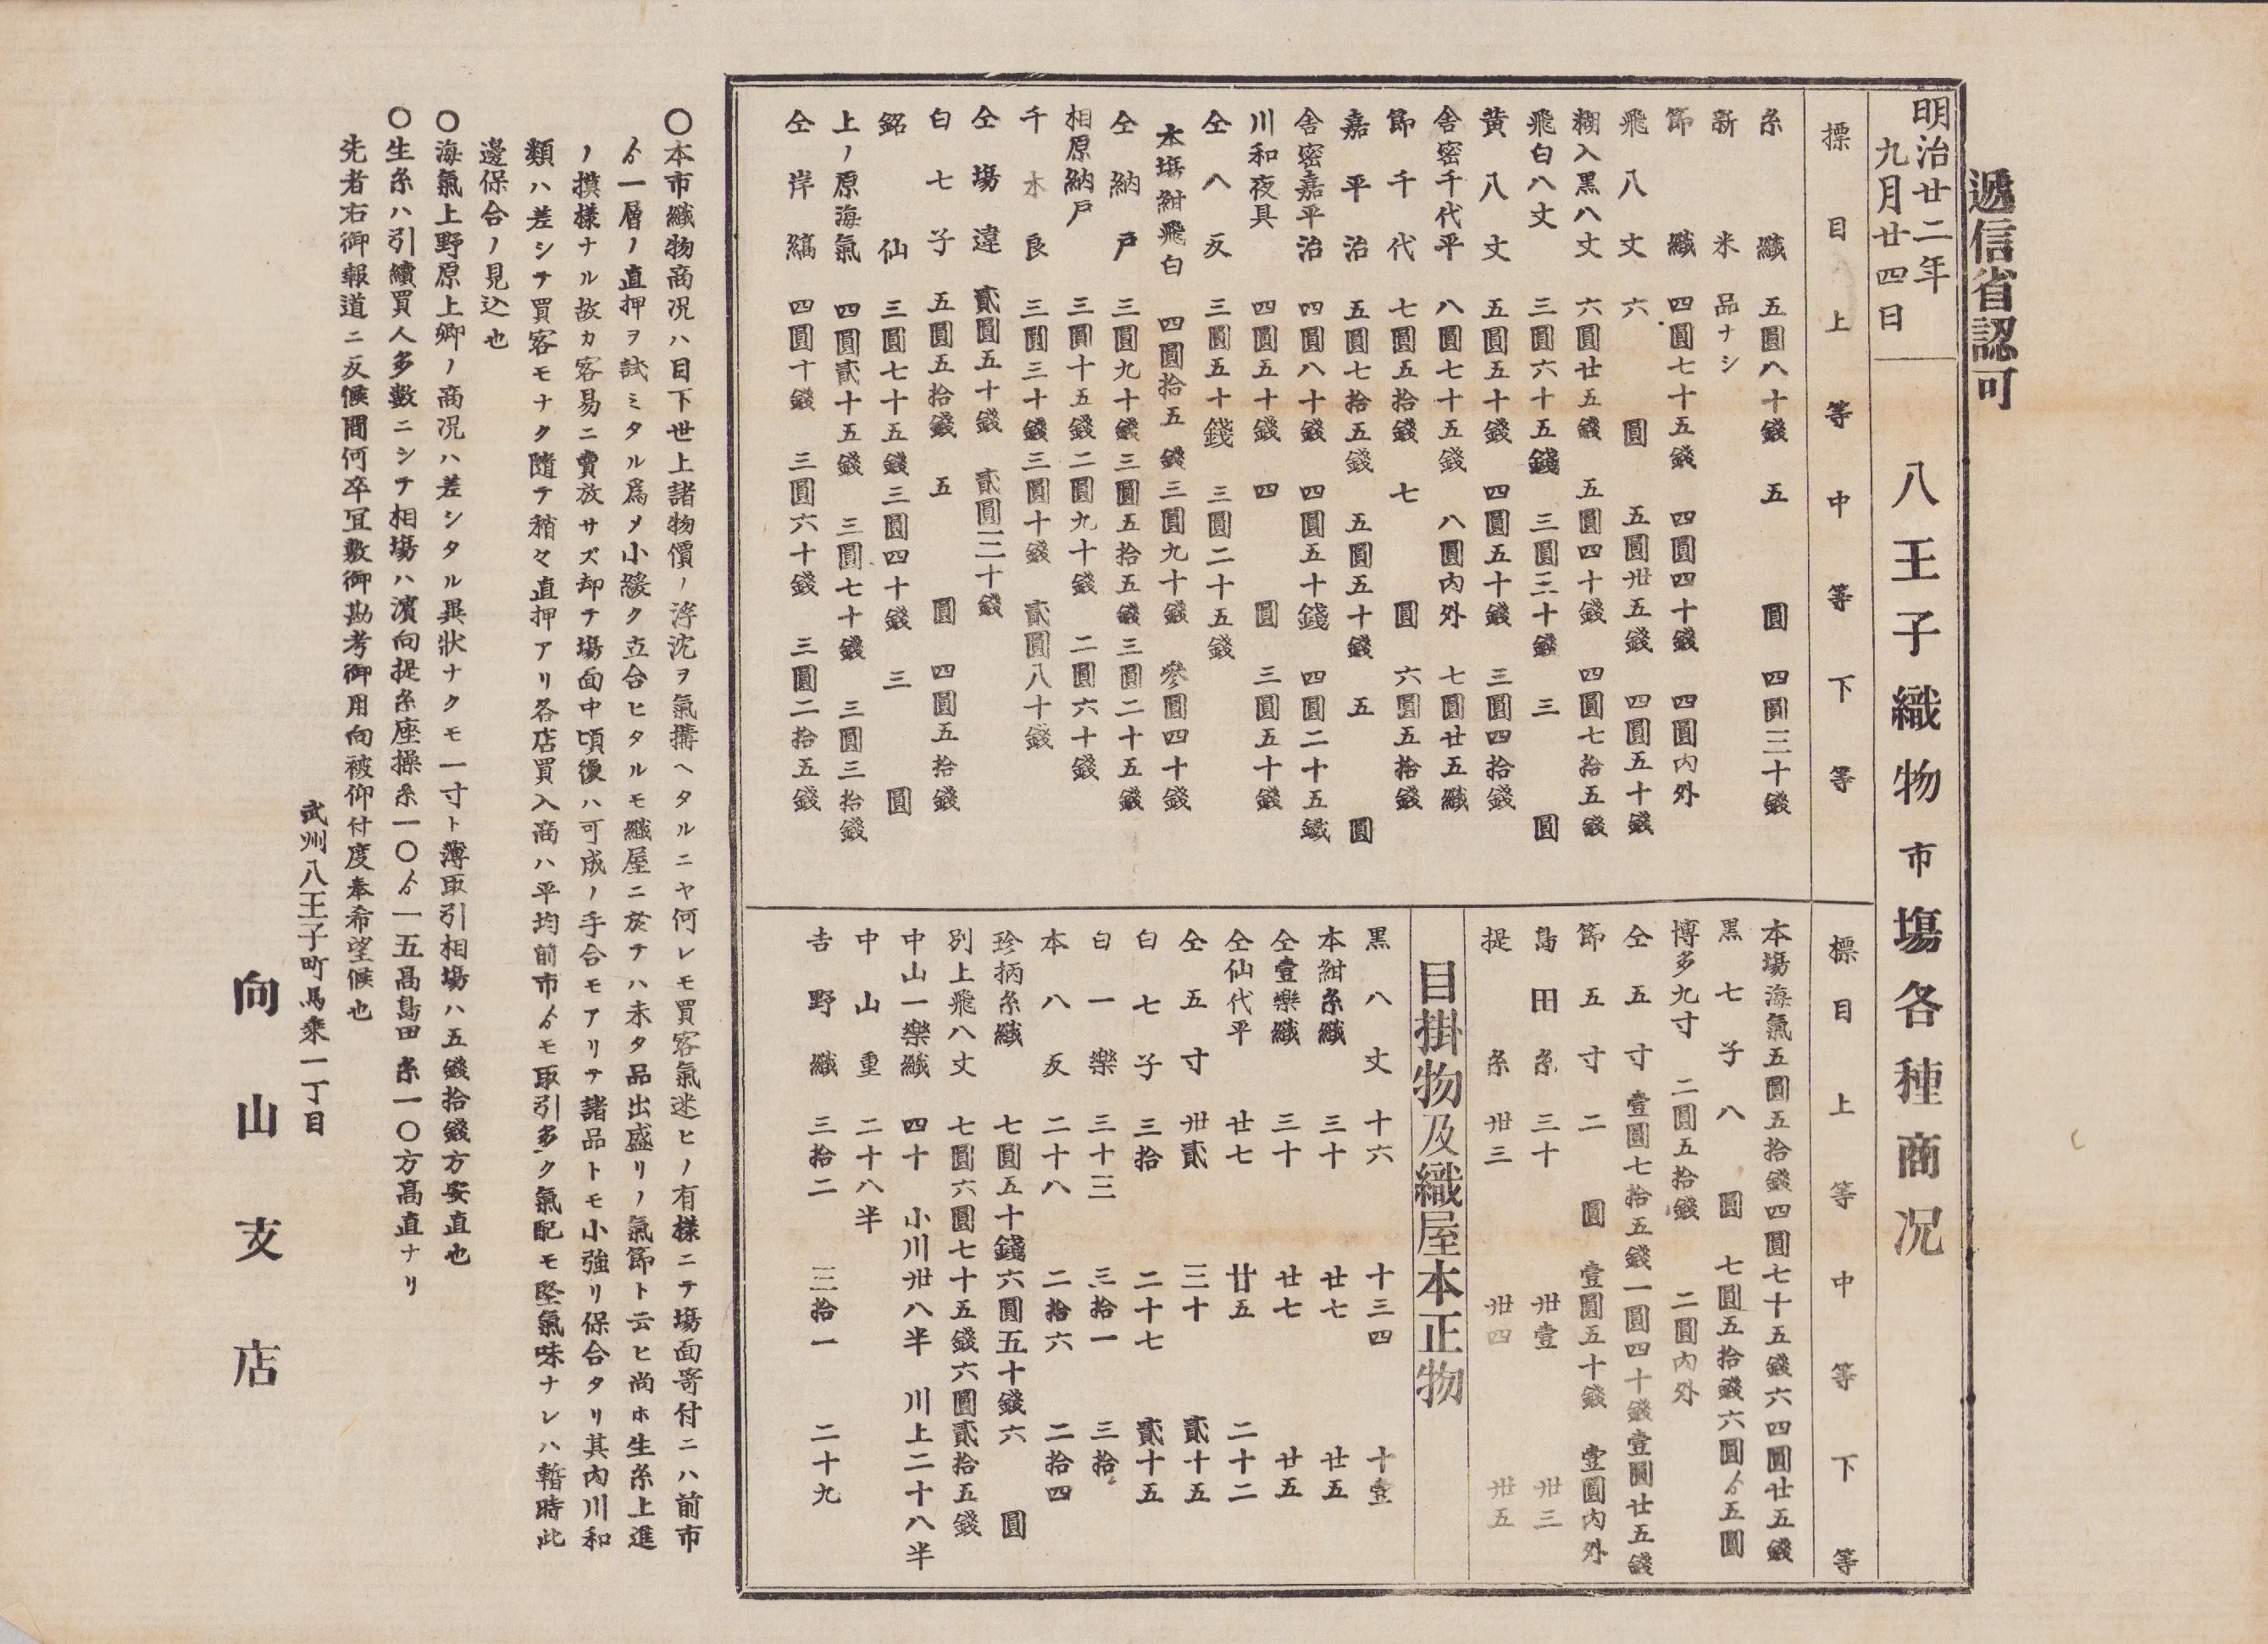 遞信省認可
明治廿二年
九月廿四日
八王子織物市塲各種商况
標目 上等 中等 下等
糸織 五圓八十錢 五圓 四圓三十錢
新米 品ナシ
節織 四圓七十五錢 四圓四十錢 四圓内外
飛八丈 六圓 五圓卅五錢 四圓五十錢
糊入黒八丈 六圓廿五錢 五圓四十錢 四圓七拾五錢
飛白八丈 三圓六十五錢 三圓三十錢 三圓
黄八丈 五圓五十錢 四圓五十錢 三圓四拾錢
舎密千代平 八圓七十五錢 八圓内外 七圓廿五織
節千代 七圓五拾錢 七圓 六圓五拾錢
嘉平治 五圓七拾五錢 五圓五十錢 五圓
舎密嘉平治 四圓八十錢 四圓五十錢 四圓二十五錢
川和夜具 四圓五十錢 四圓 三圓五十錢
仝八反 三圓五十錢 三圓二十五錢
本塲紺飛白 四圓拾五錢 三圓九十錢 參圓四十錢
仝納戸 三圓九十錢 三圓五拾五錢 三圓二十五錢
相原納戸 三圓十五錢 二圓九十錢 二圓六十錢
千木良 三圓三十錢 三圓十錢 貳圓八十錢
仝塲違 貳圓五十錢 貳圓二十錢
白七子 五圓五拾錢 五圓 四圓五拾錢
銘仙 三圓七十五錢 三圓四十錢 三圓
上ノ原海氣 四圓貳十五錢 三圓七十錢 三圓三拾錢
仝岸縞 四圓十錢 三圓六十錢 三圓二拾五錢
標目 上等 中等 下等
本塲海氣 五圓五拾錢 四圓七十五錢六 四圓廿五錢
黒七子 八圓 七圓五拾錢 六圓ゟ五圓
博多九寸 二圓五拾錢 二圓内外
仝五寸 壹圓七拾五錢 一圓四十錢 壹圓廿五錢
節五寸 二圓 壹圓五十錢 壹圓内外
島田糸 三十 卅壹 卅三
提糸 卅三 卅四 卅五
目掛物及織屋本正物
黒八丈 十六 十三四 十壹
本紺糸織 三十 廿七 廿五
仝壹樂織 三十 廿七 廿五
仝仙代平 廿七 廿五 二十二
仝五寸 卅貳 三十 貳十五
白七子 三拾 二十七 貳十五
白一樂 三十三 三拾一 三拾
本八反 二十八 二拾六 二拾四
珍柄糸織 七圓五十錢 六圓五十錢 六圓
別上飛八丈 七圓六圓七十五錢 六圓貳拾五錢
中山一樂織 四十 小川卅八半 川上二十八半
中山重 二十八半
吉野織 三拾二 三拾一 二十九
〇本市織物商况ハ目下世上諸物價ノ浮沈ヲ氣搆ヘタルニヤ何レモ買客氣迷ヒノ有樣ニテ塲面寄付ニハ前市
ゟ一層ノ直押ヲ試ミタル爲メ小緩ク立合ヒタルモ織屋ニ於テハ未タ品出盛リノ氣節ト云ヒ尚ホ生糸上進
ノ摸樣ナル故カ客易ニ賣放サズ却テ塲面中頃復ハ可成ノ手合モアリテ諸品トモ小強リ保合タリ其内川和
類ハ差シテ買客モナク隨テ稍々直押アリ各店買入商ハ平均前市ゟモ取引多ク氣配モ堅氣味ナレハ暫時此
邊保合ノ見込也
〇海氣上野原上郷ノ商况ハ差シタル異狀ナクモ一寸ト薄取引相塲ハ五錢拾錢方安直也
〇生糸ハ引續買人多數ニシテ相塲ハ濱向提糸座操糸一〇ゟ一五髙島田糸一〇方髙直ナリ
先者右御報道ニ及候間何卒冝敷御勘考御用向被仰付度奉希望候也
武州八王子町馬乘一丁目
向山支店